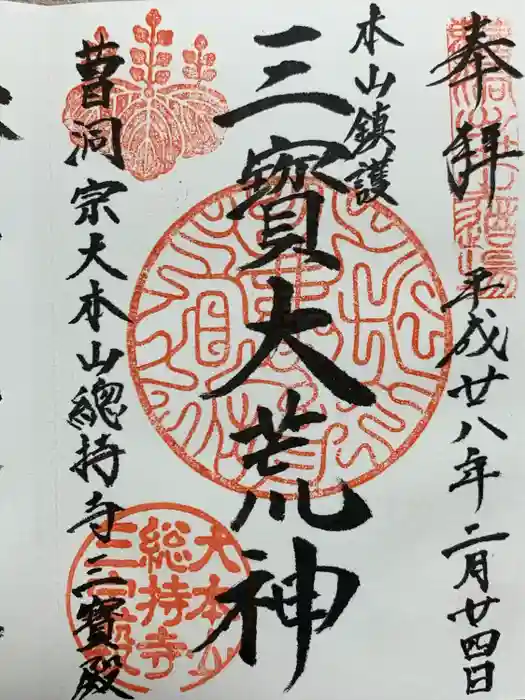 奉拜
平成廿八年二月廿四日
本山鎮護
三寳大荒神
曹洞宗大本山總持寺三寶殿
大本山
総持寺
三宝殿